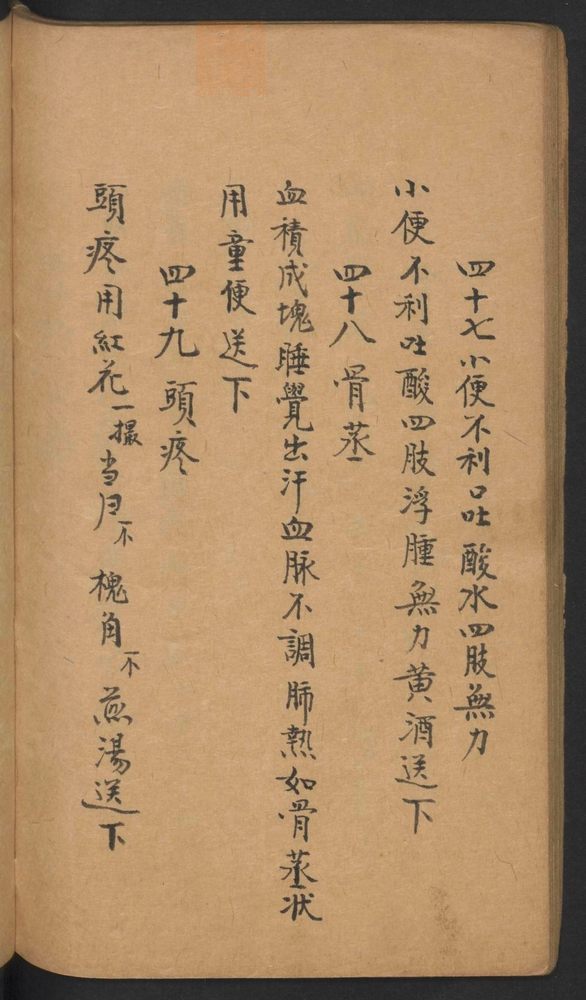 四十七小便不利口吐酸水四肢無力
小便不利吐酸四肢浮腫無力黄酒送下
四十八骨蒸
血積成塊睡覺出汗血脉不調肺熱如骨蒸状
用童便送下
四十九頭疼
頭疼用紅花一撮当归不槐角不煎湯送下